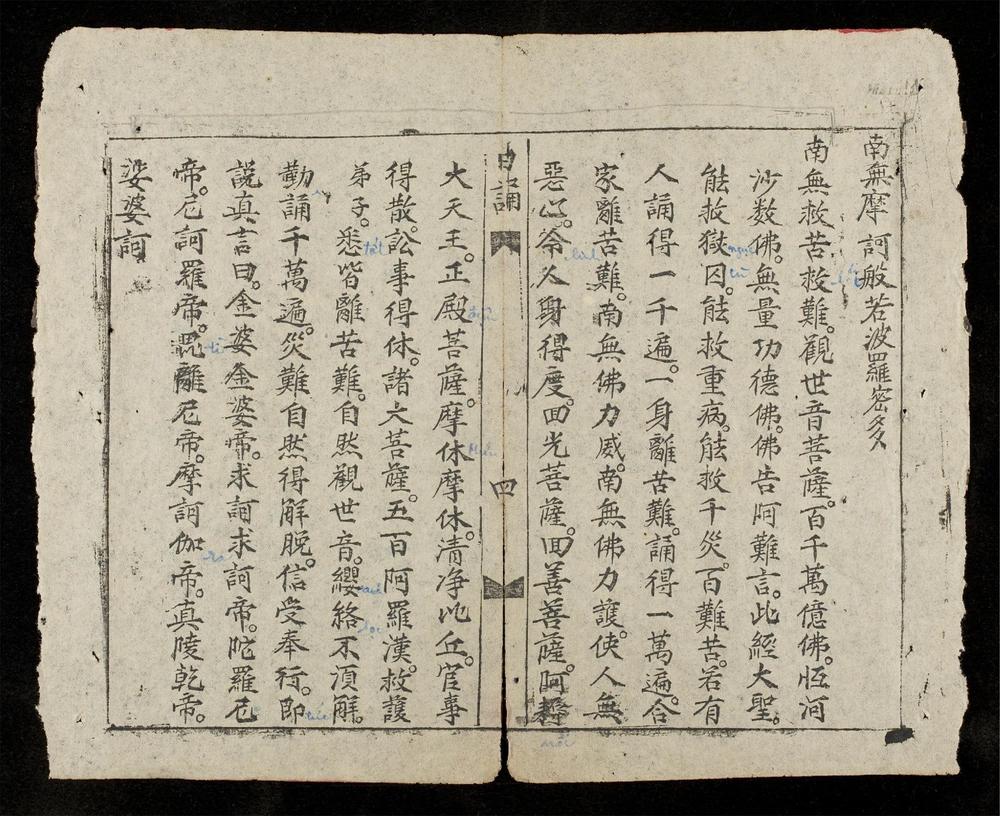 南無摩訶般若波羅密多
南無救苦救難。觀世音菩薩。百千萬億佛。恆河
沙数佛。無量功德佛。佛告阿難言。此經大聖。
能救獄囚。能救重病。能救千災。百難苦。若有
人誦得一千遍。一身離苦難。誦得一萬遍。合
家離苦難。南無佛力威。南無佛力護。使人無
惡心。令人身得度。回光菩薩。回善菩薩。阿耨
日誦
四
大天王。正殿菩薩。摩休摩休。清净比丘。官事
得散。訟事得休。諸大菩薩。五百阿羅漢。救護
弟子。悉皆離苦難。自然觀世音。纓絡不須解。
勤誦千萬遍。災難自然得解脫。信受奉行。即
説真言曰。金婆金婆帝。求訶求訶帝。陀羅尼
帝。尼訶羅帝。毘離尼帝。摩訶伽帝。真陵乾帝。
娑婆訶